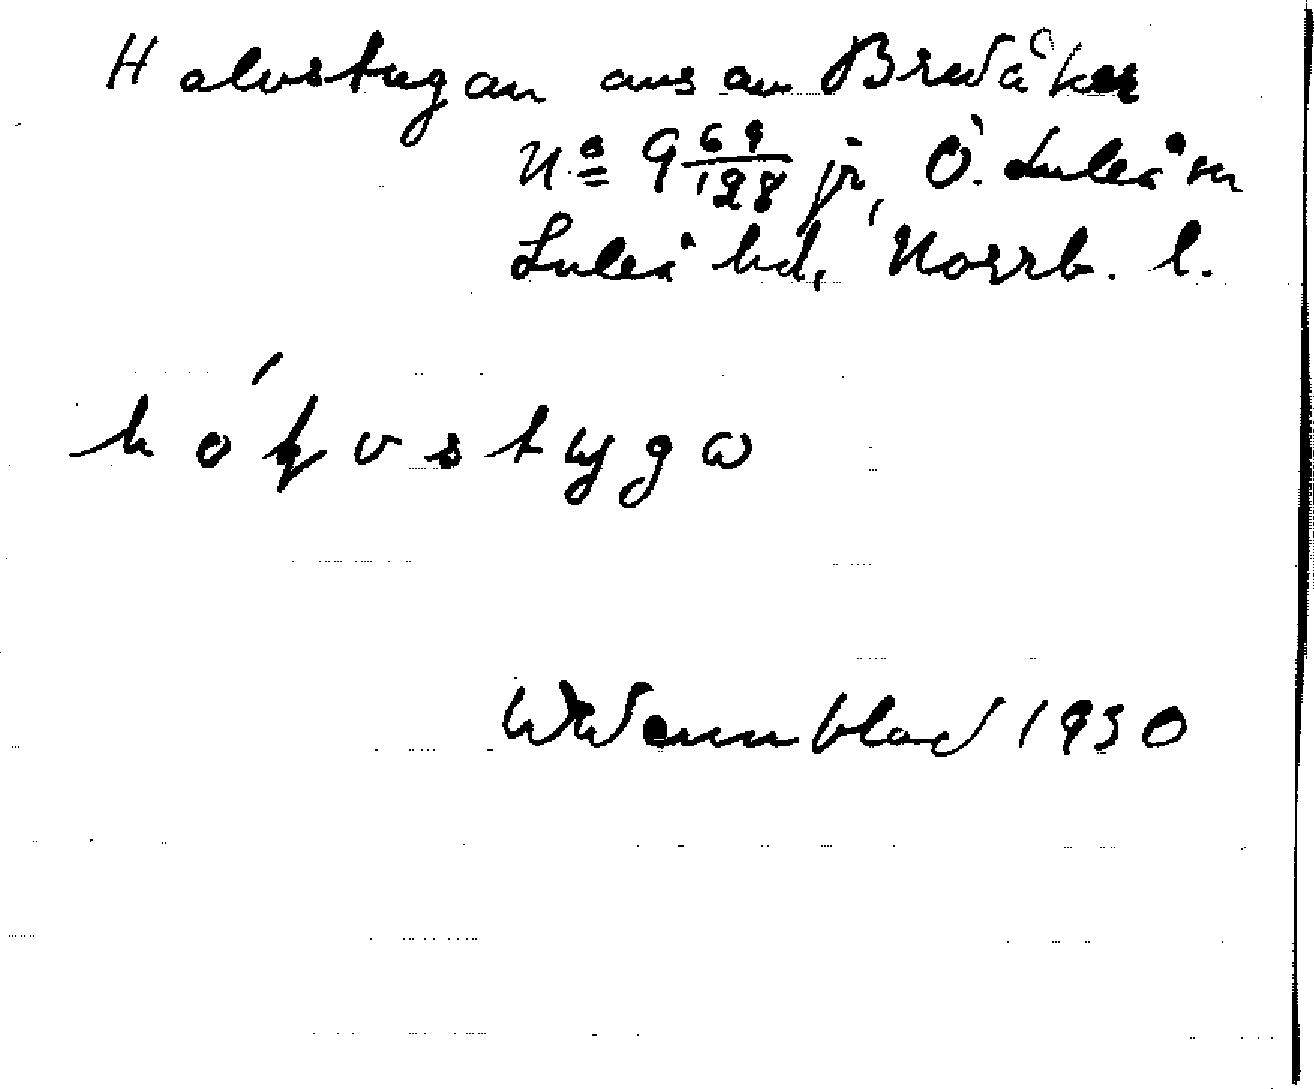 Halvstugan ans av Bredåker
No 9 69/128 jr, Ö. Luleå sn
Luleå hd, Norrb. l.
hóḷvstyga
Widenmblad 1930